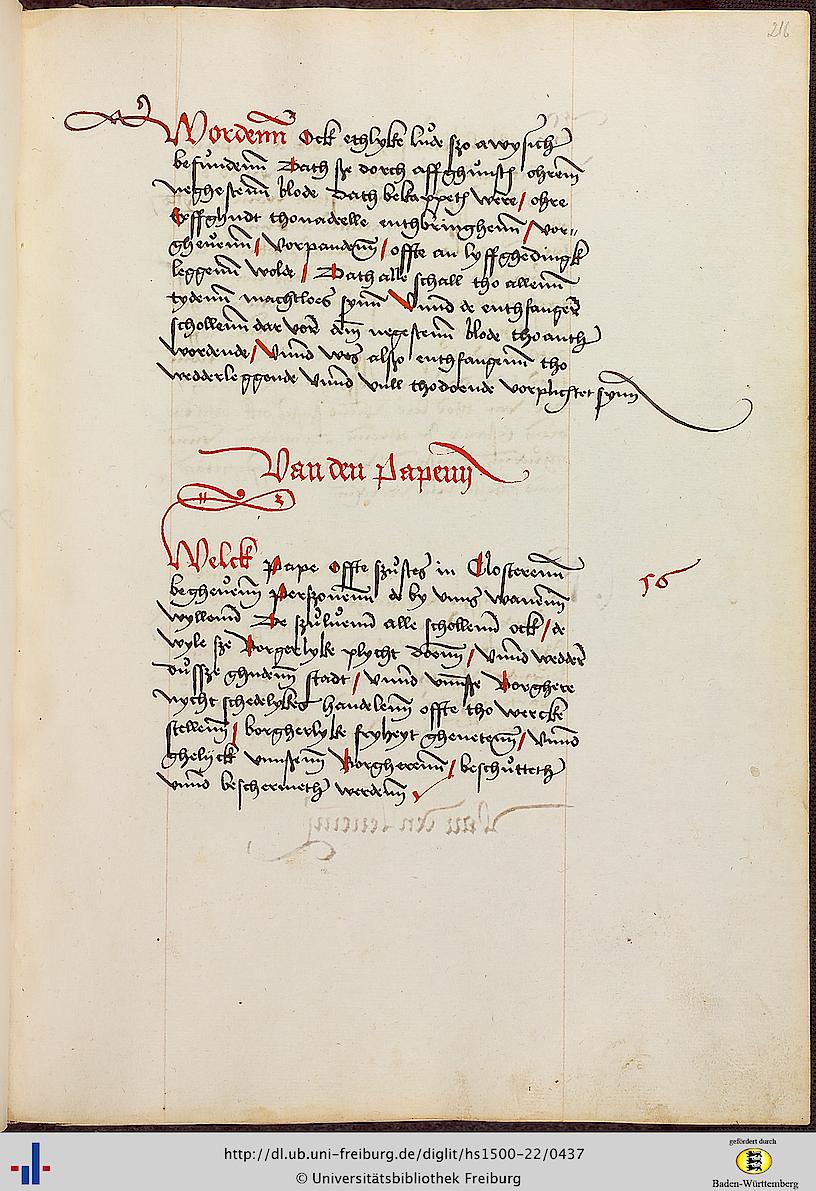 216
Wordenn Ock ethlyke lude szo awysich
befundenn Dath sze dorch affghunst ohrem
neghestenn blode Dath bekappeth were / ohre
Erffghudt thouadrelle enthbringhenn / vor-
gheuenn / vorpandenn / offte an lyffghedingk
leggenn wolde / Dath alle schall tho allenn
tydenn machtloes synn Vnnd de enthfanger
schollenn dar vor dem negestenn blode tho anth
wordende / Vnnd wes alszo enthfangenn tho
wedderleggende vnnd vull thodoende vorplichtet synn
Van den Papenn
Welck Pape Offte szustes in Closterenn
begheuenn Perszonenn de by vnns wanenn
wyllenn De szuluenn alle schollenn ock / de
wyle sze Borgerlyke plycht doenn / Vnnd wedder
dusze ghudenn stadt / vnnd vnnsze Borghere
nycht schedelykes handelenn offte tho wercke
stellenn / borgherlyke fryheyt ghenetenn / vnnd
ghelyck vnnszenn Borgherenn / beschutteth
vnnd beschermeth werdenn
56
http://dl.ub.uni-freiburg.de/diglit/hs1500-22/0437
© Universitätsbibliothek Freiburg
gefördert durch
Baden-Württemberg